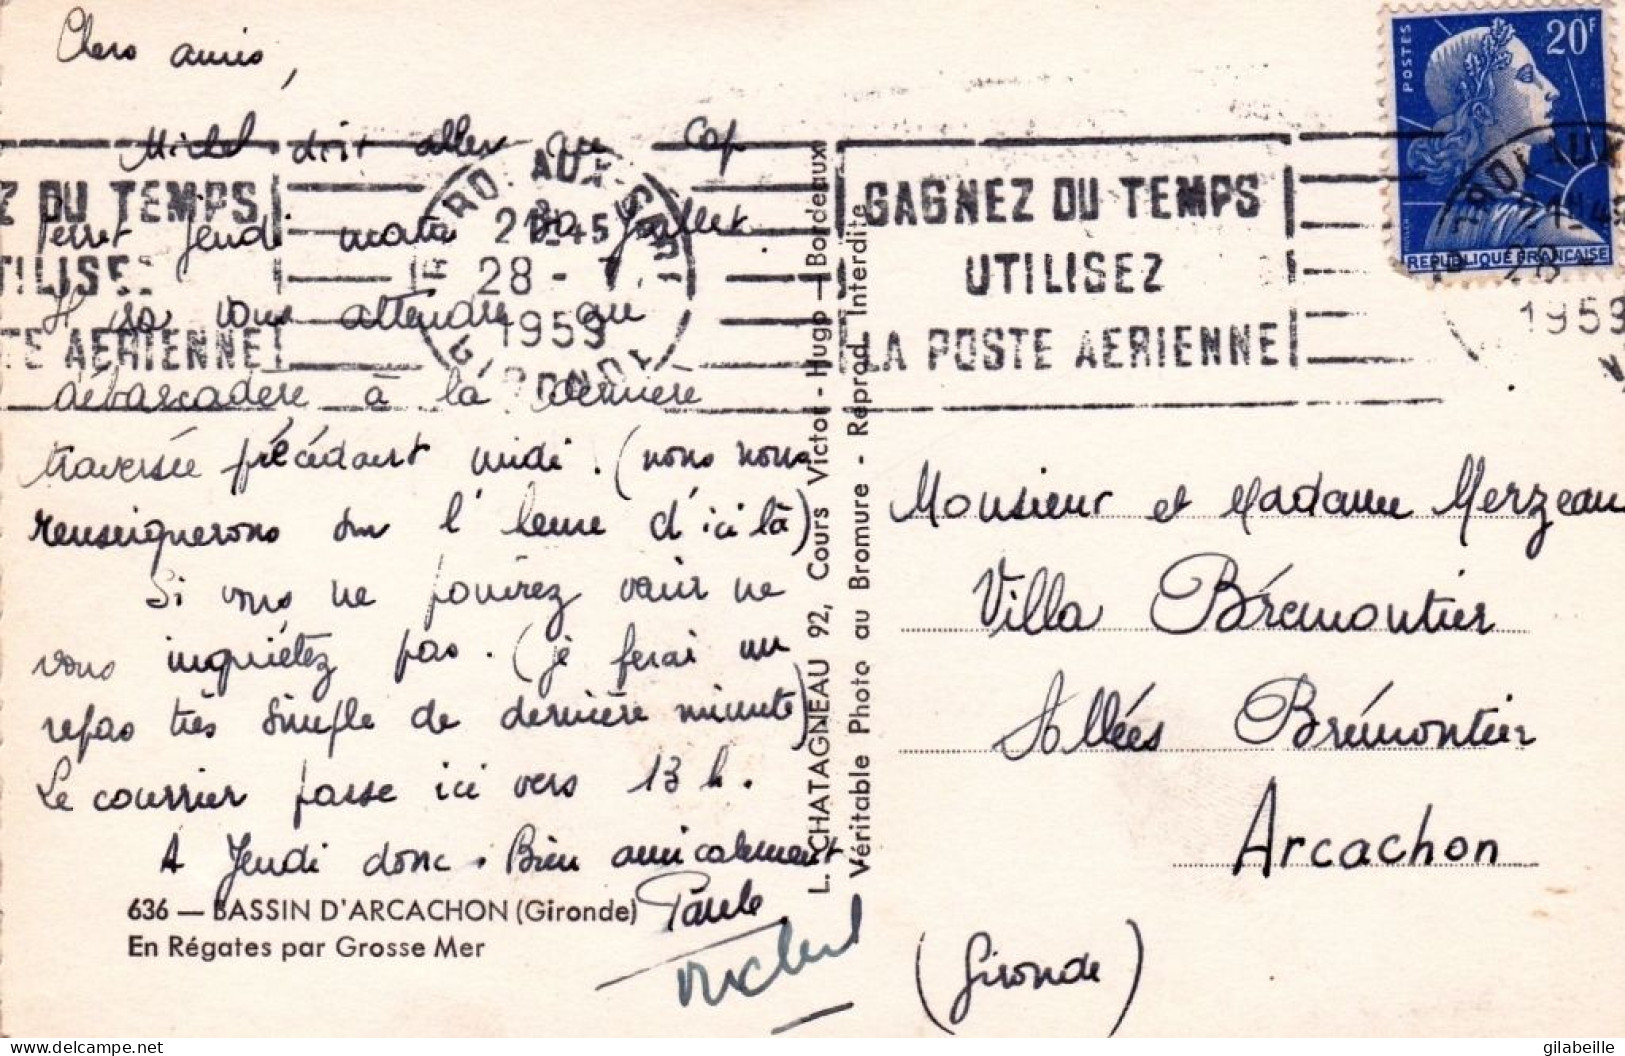 Chers amis,
Michel doit aller au Cap
Ferret Jeudi matin 30 Juillet.
Il ira vous attendre au
débarcadère à la dernière
traversée précédant midi. (nous nous
renseignerons sur l'heure d'ici là)
Si vous ne pouvez venir ne
vous inquiétez pas. (je ferai un
repas très simple de dernière minute)
Le courrier passe ici vers 13 h.
A Jeudi donc. Bien amicalement
Paule
Michel
636 — BASSIN D'ARCACHON (Gironde)
En Régates par Grosse Mer
Z DU TEMPS
TILISEZ
TE AERIENNE
BORDEAUX-GARE
21H45
28 - 7
1959
GIRONDE
GAGNEZ DU TEMPS
UTILISEZ
LA POSTE AERIENNE
L. CHATAGNEAU 92, Cours Victor-Hugo — Bordeaux
Véritable Photo au Bromure - Reprod. Interdite
POSTES
20F
REPUBLIQUE FRANÇAISE
1959
Monsieur et Madame Merzeau
Villa Brémontier
Allées Brémontier
Arcachon
(Gironde)
gilabeille